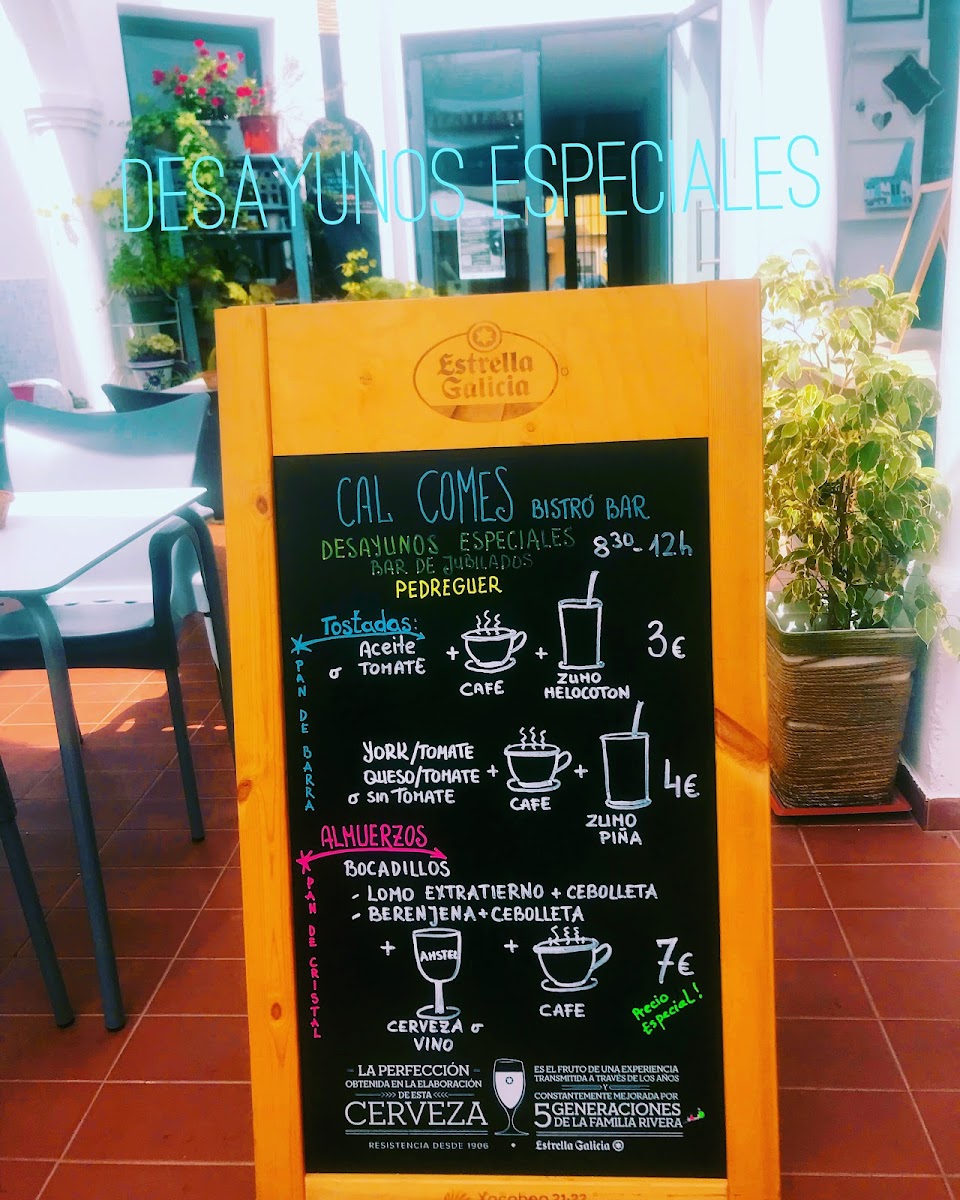 DESAYUNOS ESPECIALES
Estrella
Galicia
CAL COMES BISTRÓ BAR
DESAYUNOS ESPECIALES 8³⁰-12h
BAR DE JUBILADOS
PEDREGUER
Tostadas:
Aceite
o TOMATE
+ CAFE + ZUMO
MELOCOTON
3€
PAN DE BARRA
YORK/TOMATE
QUESO/TOMATE
o SIN TOMATE
+ CAFE + ZUMO
PIÑA
4€
ALMUERZOS
PAN DE CRISTAL
BOCADILLOS
- LOMO EXTRATIERNO + CEBOLLETA
- BERENJENA + CEBOLLETA
+ AMSTEL + 7€
CERVEZA o
VINO
CAFE
Precio
Especial!
LA PERFECCIÓN
OBTENIDA EN LA ELABORACIÓN
DE ESTA
CERVEZA
RESISTENCIA DESDE 1906
ES EL FRUTO DE UNA EXPERIENCIA
TRANSMITIDA A TRAVÉS DE LOS AÑOS
Y
CONSTANTEMENTE MEJORADA POR
5 GENERACIONES
DE LA FAMILIA RIVERA
Estrella Galicia
Xacobeo 21·22